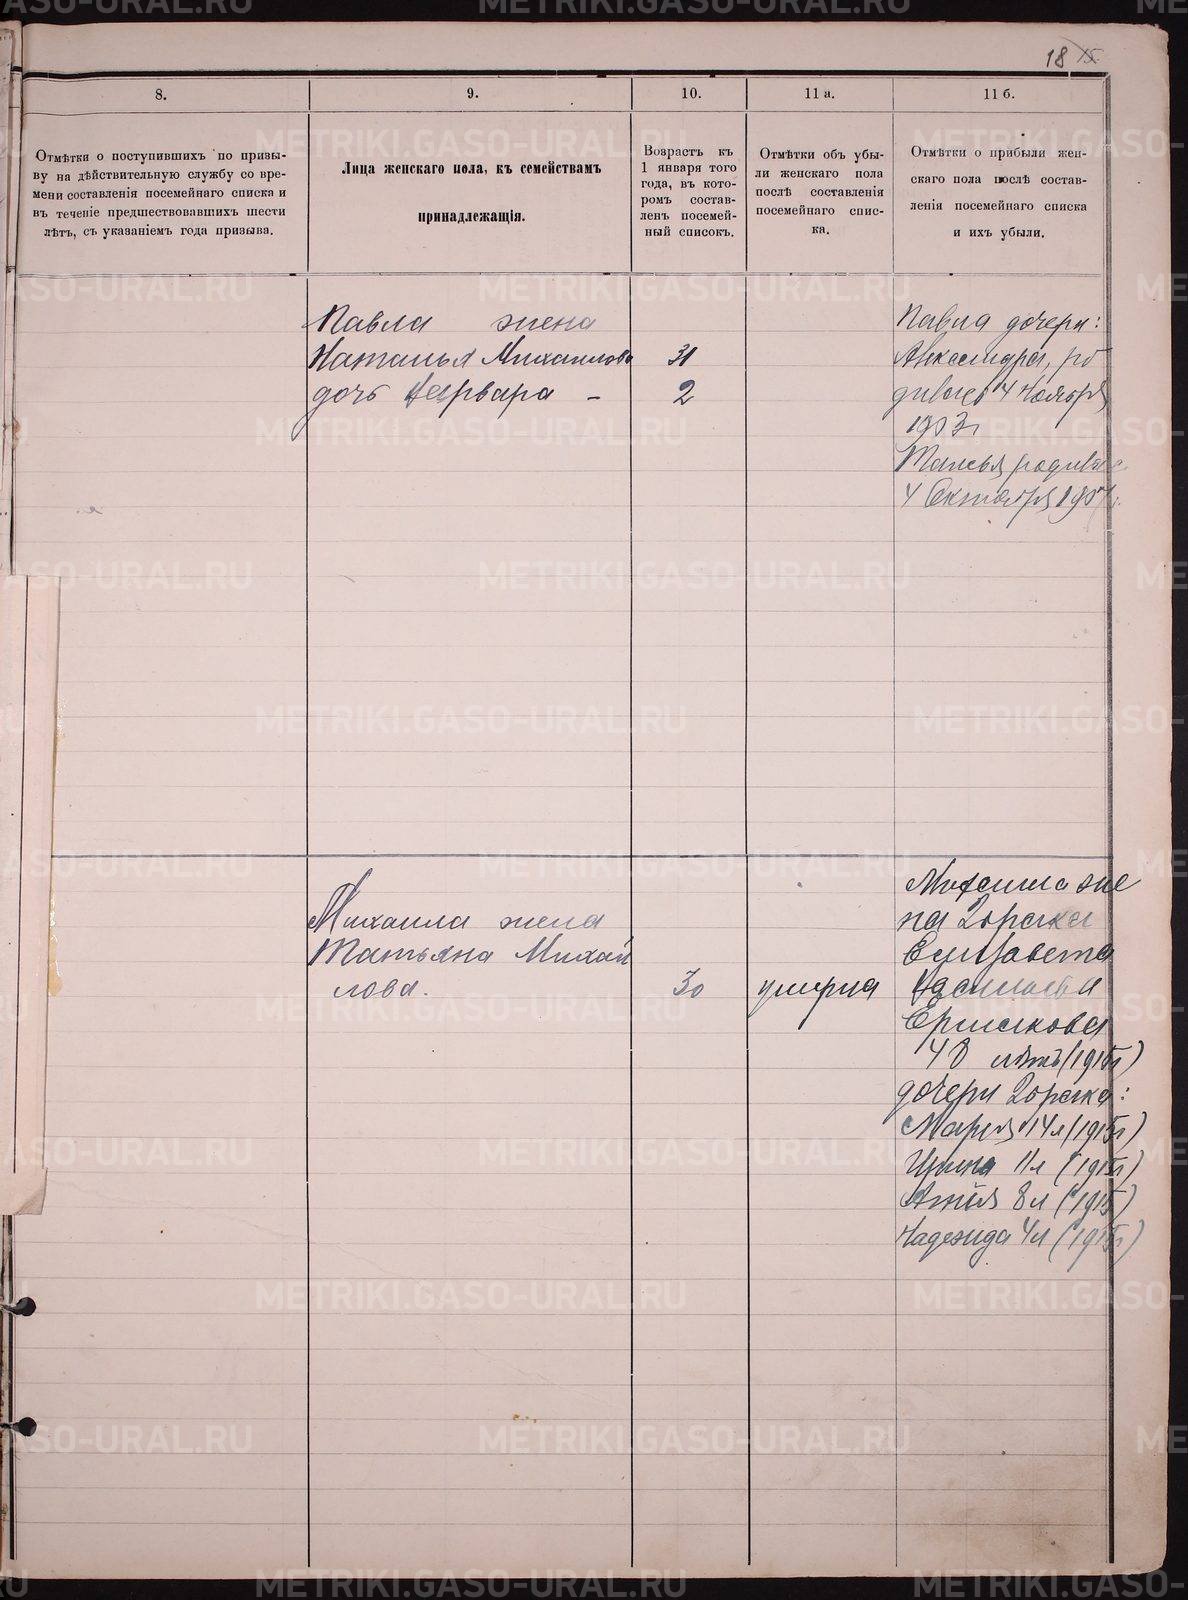 18 15.
8.
9.
10.
11 а.
11 б.
Отмѣтки о поступившихъ по призы-
ву на дѣйствительную службу со вре-
мени составленія посемейнаго списка и
въ теченіе предшествовавшихъ шести
лѣтъ, съ указаніемъ года призыва.
Лица женскаго пола, къ семействамъ
принадлежащія.
Возрастъ къ
1 января того
года, въ кото-
ромъ состав-
ленъ посемей-
ный списокъ.
Отмѣтки объ убы-
ли женскаго пола
послѣ составленія
посемейнаго спис-
ка.
Отмѣтки о прибыли жен-
скаго пола послѣ состав-
ленія посемейнаго списка
и ихъ убыли.
Павла жена
Наталья Михаилова 31
дочь Варвара – 2
Павла дочери:
Александра, ро
дилась 4 Ноября
1903г
Татья родилас
4 Октября 190
Михаила жена
Татьяна Михай
лова. 30 умерла
Михаила же
на
Елизавета
Васильева
Ермакова
лѣтъ (1915г)
дочери
Марія 14 л (1915г)
11 л (1915г)
8 л (1915)
Надежда 4 л (1915г)
METRIKI.GASO-URAL.RU